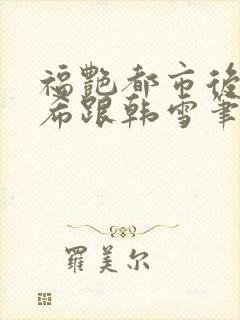 福艷都市後
希跟韩雪筆
羅美尔